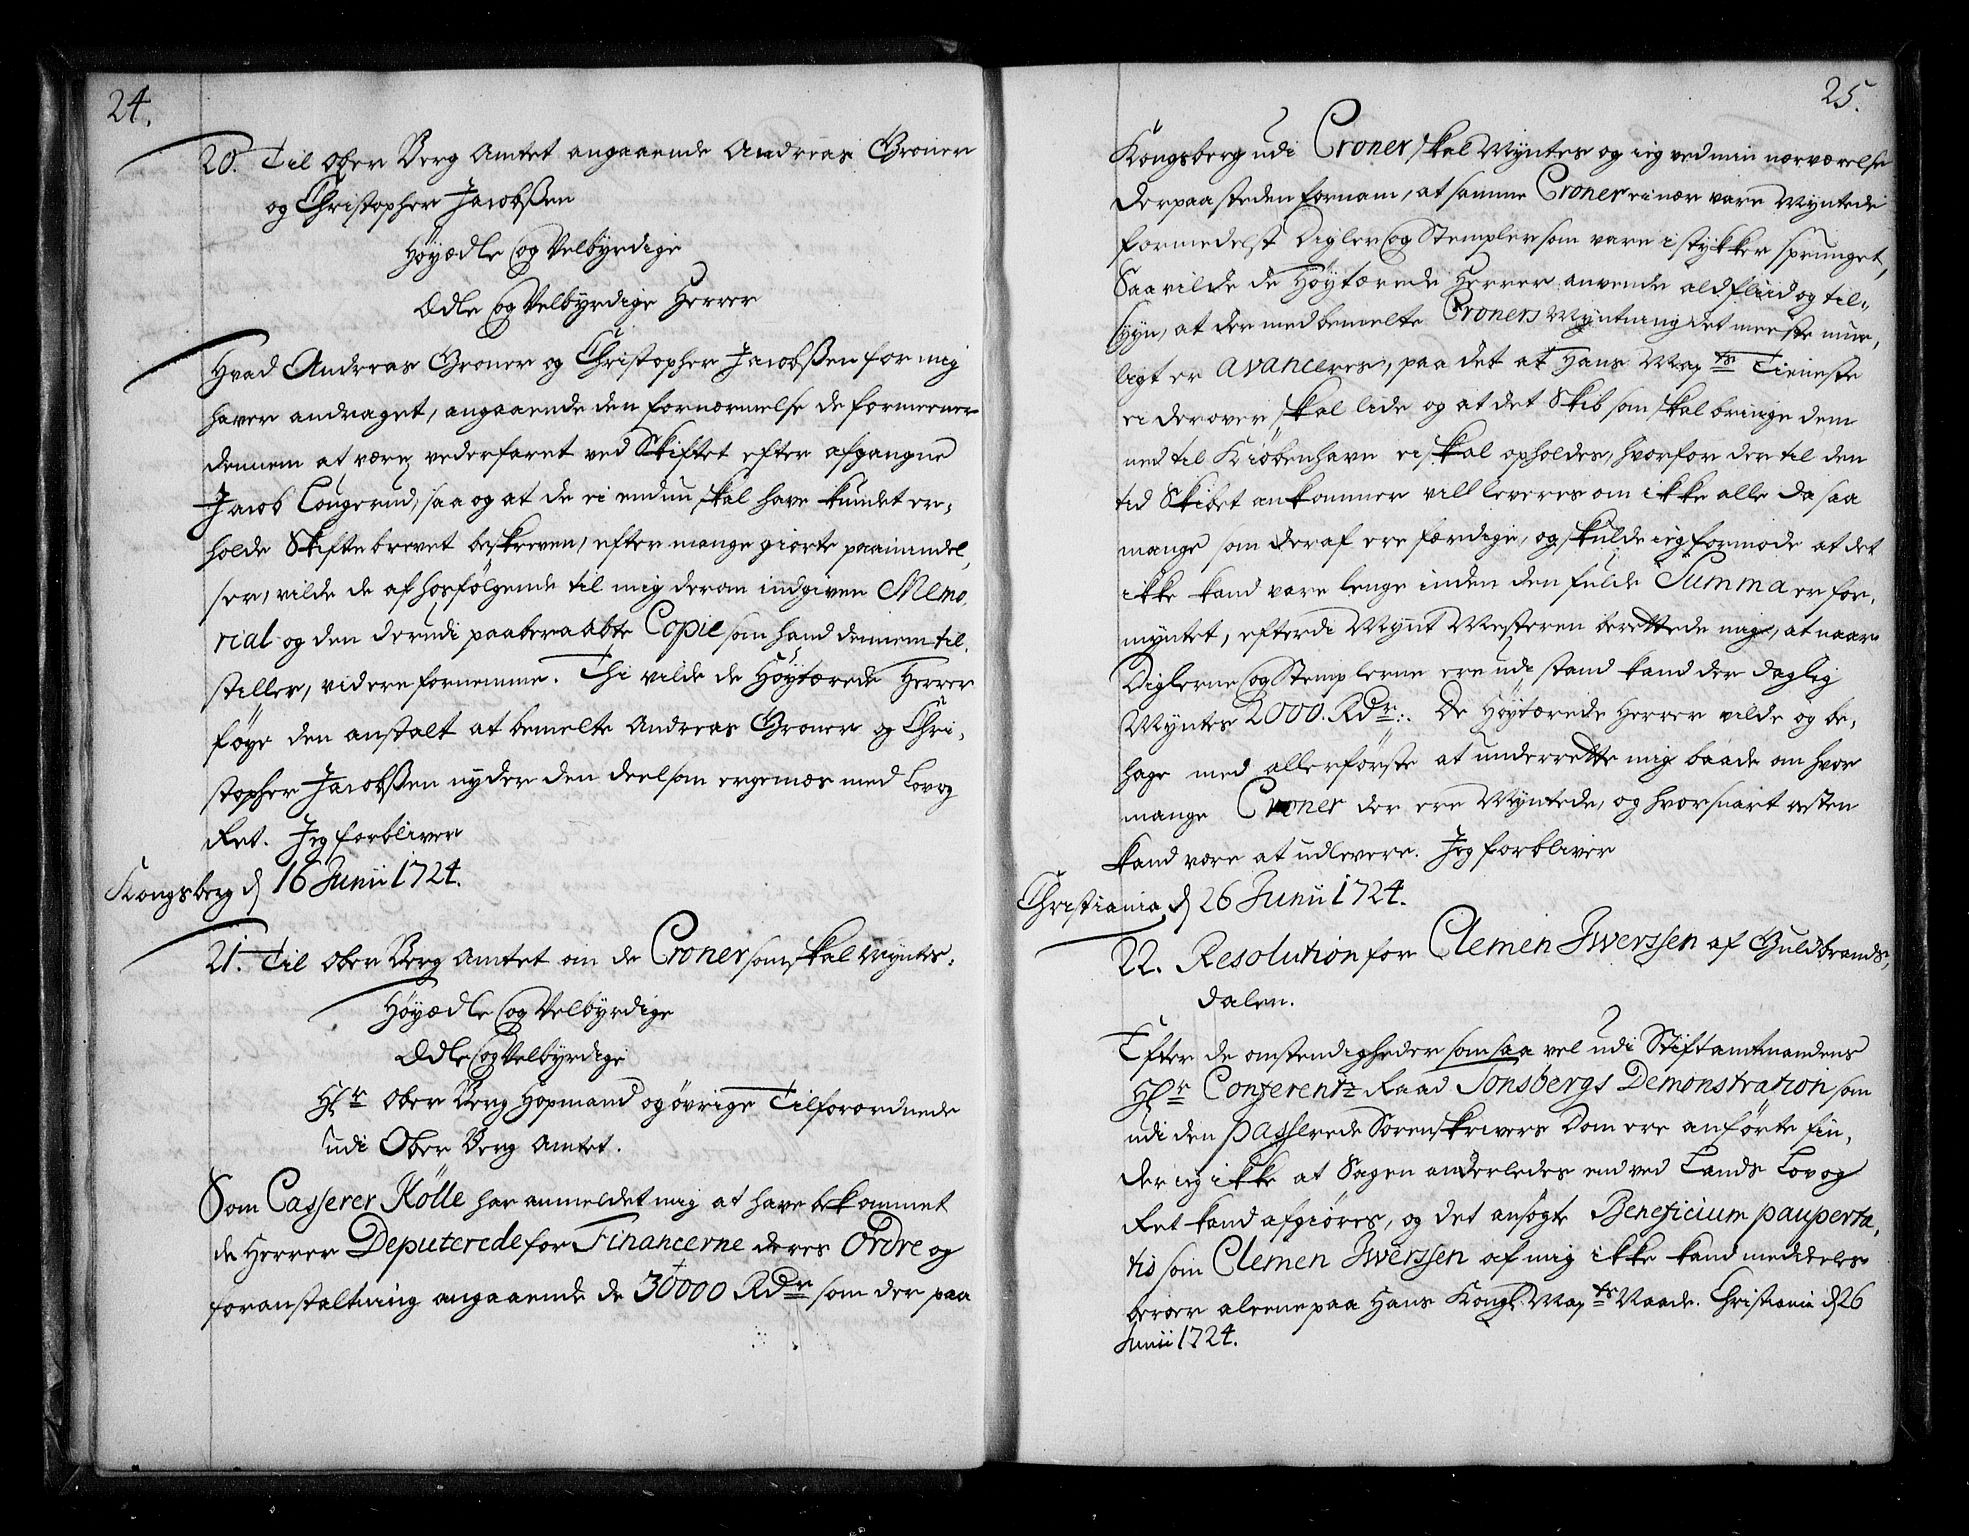 24.
20. Til Ober Berg Amtet angaaende Andreas Groner
og Christopher Jacobssen
Höyædle og Velbyrdige
Ædle og Velbyrdige Herrer
Hvad Andreas Groner og Christopher Jacobssen for mig
haver andraget, angaaende den fornærmelse de formeener
dennem at være vederfaret ved Skiftet efter afgangne
Jacob Lougerud, saa og at de ei endnu skal have kundet er-
holde Skiftebrevet beskreven, efter mange giorte paamindel,
ser, vilde de af hosfölgende til mig derom indgiven Memo,
rial og den derudi paaberaabte Copie som hand dennem til,
stiller, videre fornemme. Thi vilde de Höytærede Herrer
föye den anstalt at bemelte Andreas Groner og Chri,
stopher Jacobssen nyder den deel som ergemæs med Lov og
Ret. Jeg forbliver
Kongsberg d 16 Junii 1724.
21. Til Ober Berg Amtet om de Croner som skal Myntes.
Höyædle og Velbyrdige
Ædle og Velbyrdige
Hr Ober Berg Hopmand og övrige Tilforordnede
udi Ober Berg Amtet.
Som Casserer Kölle har anmeldet mig at have bekommet
de Herrer Deputerede for Financerne deres Ordre og
foranstaltning angaaende de 30000 Rdr som der paa
25.
Kongsberg udi Croner skal Myntes og ieg ved min nærværelse
der paa steden fornam, at samme Croner ei nær vare Myntede
formedelst Digler og Stempler som vare i stykker sprunget,
Saa vilde de Höytærede Herrer anvende ald fliid og til-
syn, at der med bemelte Croners Myntning det meeste mue,
ligt er avanceres, paa det at Hans Mayts Tieneste
ei derover skal lide og at det Skib som skal bringe dem
ned til Kiöbenhavn ei skal opholdes, hvorfor der til den
tid Skibet ankommer vill leveres om ikke alle da saa
mange som deraf ere færdige, og skulde ieg formode at det
ikke kand vare lenge inden den fulde Summa er for,
myntet, efterdi Mynt Mesteren berettede mig, at naar
Diglerne og Stemplerne ere udi stand kand der daglig
Myntes 2000. Rdr. De Höytærede Herrer vilde og be,
hage med allerförste at underrette mig baade om hvor
mange Croner der ere Myntede, og hvor snart resten
kand være at udlevere. Jeg forbliver
Christiania d 26 Junii 1724.
22. Resolution for Clemen Iwerssen af Guldbrands,
dalen.
Efter de omstendigheder som saa vel udi Stiftamtmandens
Hr Conferentz Raad Tonsbergs Demonstration som
udi den passerede Sorenskrivers Dom ere anförte fin,
der ieg ikke at Sagen anderledes end ved Lands Lov og
Ret kand afgiöres, og det ansögte Beneficium pauperta,
tis som Clemen Iwerssen af mig ikke kand meddeles
beroer aleene paa Hans Kongl. Mayts Naade. Christiania d 26
Junii 1724.